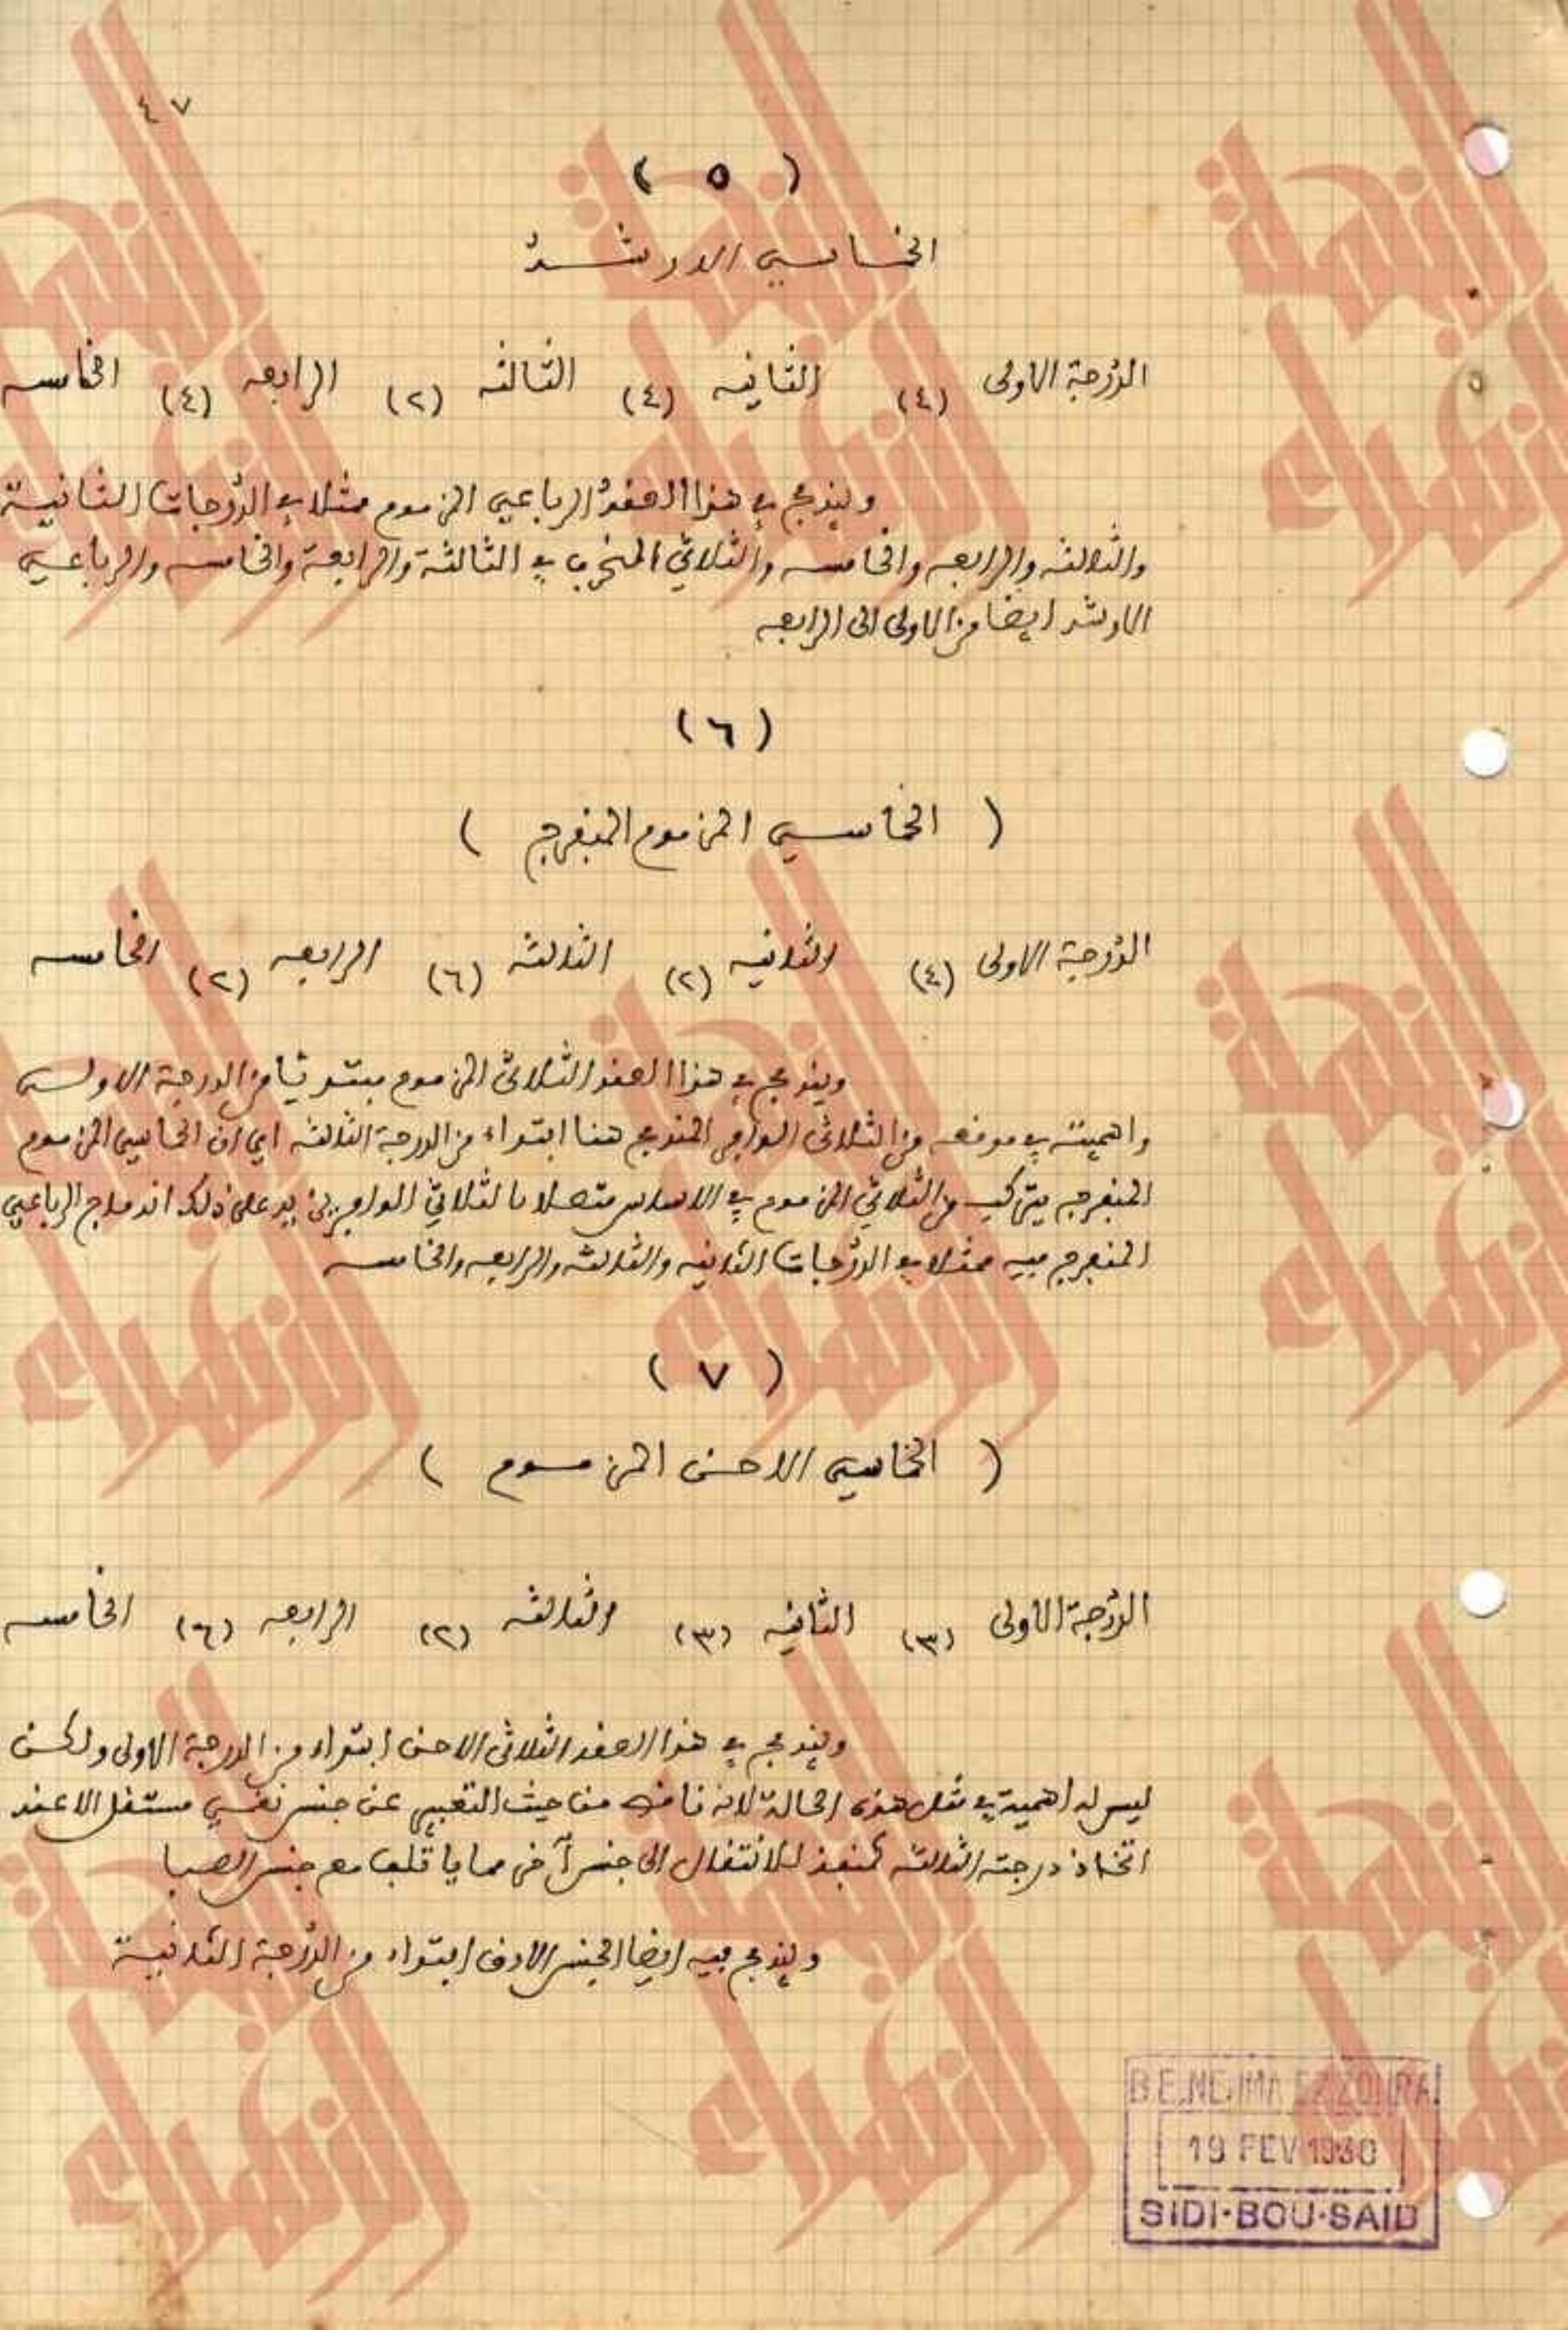 ٤٧
( ٥ )
الخماسي الارشد
الدرجة الاولى (٤) الثانيه (٤) الثالثه (٢) الرابعه (٤) الخامسه
ويندمج في هذا العقد الرباعي المزموم ممثلا في الدرجات الثانية
والثالثه والرابعه والخامسه والثلاثي المنحرف في الثالثة والرابعة والخامسه والرباعي
الارشد ايضا من الاولى الى الرابعه
(٦)
( الخماسي المزموم المنفرج )
الدرجة الاولى (٤) الثانيه (٢) الثالثه (٦) الرابعه (٢) الخامسه
ويندمج في هذا العقد الثلاثي المزموم مبتدئا من الدرجة الاولى
واهميته في موقعه من الثلاثي الوافر المندمج هنا ابتداء من الدرجة الثالثه اي ان الخماسي المزموم
المنفرج يتركب من الثلاثي المزموم في الاساس متصلا بالثلاثي الوافر يزيد على ذلك اندماج الرباعي
المنفرج فيه ممثلا في الدرجات الثانيه والثالثه والرابعه والخامسه
( ٧ )
( الخماسي الاحن المزموم )
الدرجة الاولى (٣) الثانيه (٣) الثالثه (٢) الرابعه (٦) الخامسه
ويندمج في هذا العقد الثلاثي الاحن ابتداء من الدرجة الاولى ولكن
ليس له اهمية في مثل هذه الحالة لانه ناقص من حيث التعبير عن جنس نفسي مستقل الا عند
اتخاذ درجته الثالثه كمنفذ للانتقال الى جنس آخر مما يأتلف مع جنس الصبا
ويندمج فيه ايضا الجنس الارق ابتداء من الدرجة الثانية
B.E. NEJMA EZZOHRA
19 FEV 1930
SIDI-BOU-SAID
النجمة الزهراء